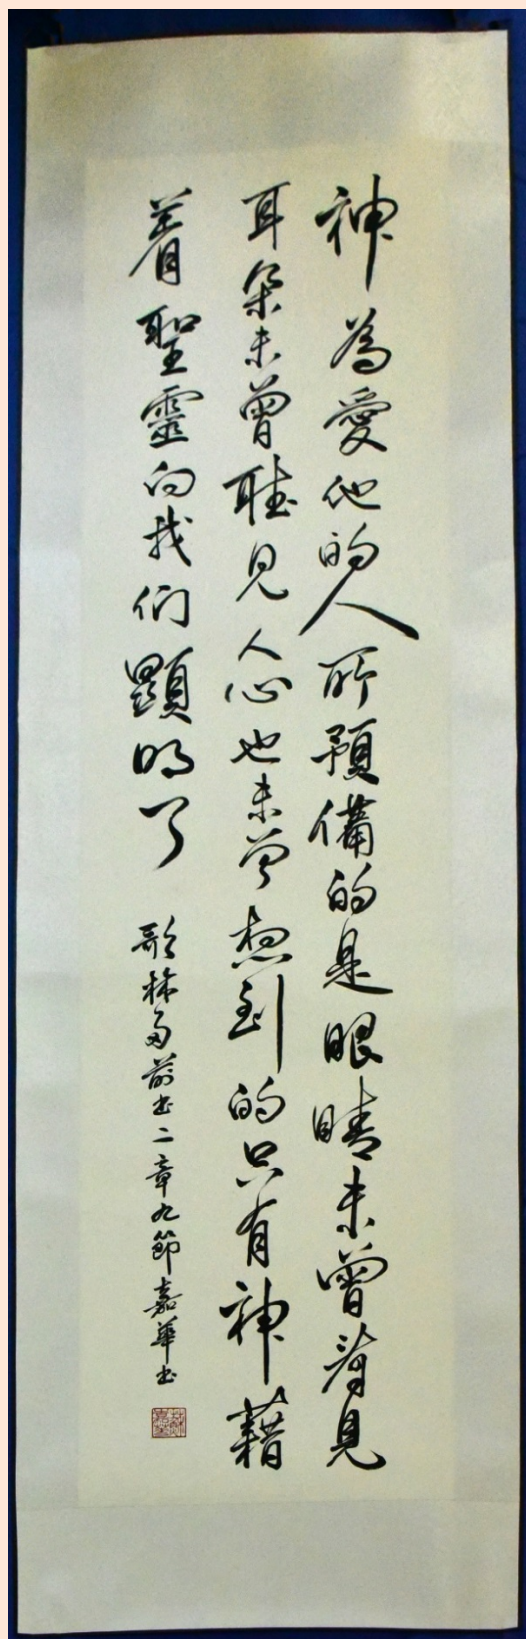 神為愛他的人所預備的是眼睛未曾看見
耳朵未曾聽見人心也未曾想到的只有神藉
着聖靈向我们顯明了
歌林多前书二章九節嘉華书